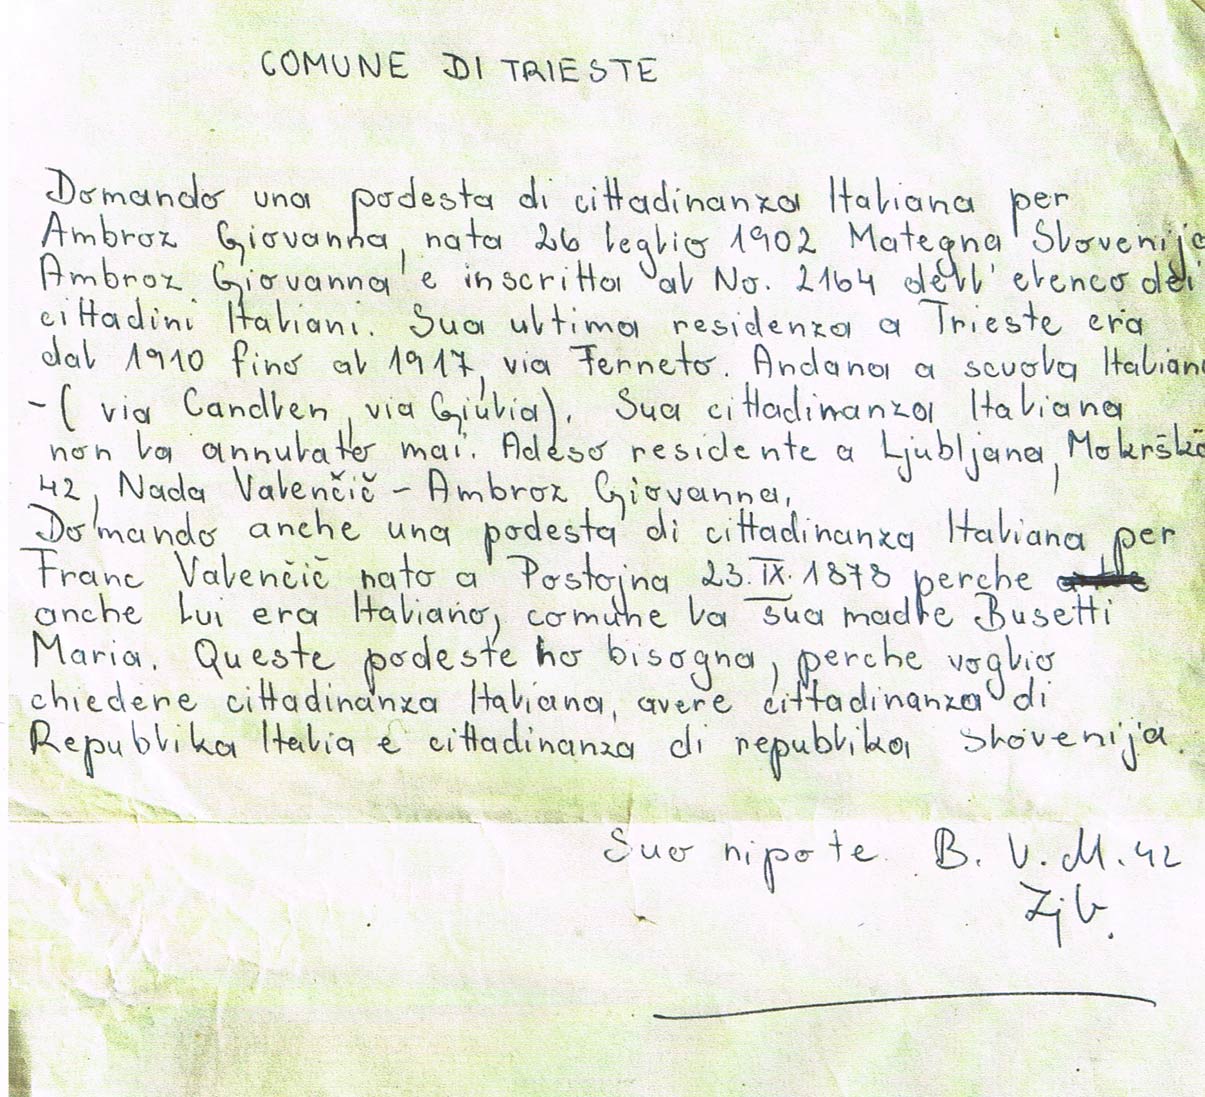 COMUNE DI TRIESTE
Domando una podesta di cittadinanza Italiana per
Ambroz Giovanna, nata 26 leglio 1902 Mategna Slovenija
Ambroz Giovanna e inscritta al No. 2164 dell' elenco dei
cittadini Italiani. Sua ultima residenza a Trieste era
dal 1910 fino al 1917, via Ferneto. Andana a scuola Italian
-( via Candlen, via Giulia). Sua cittadinanza Italiana
non la annulato mai. Adeso residente a Ljubljana, Mokrška
42, Nada Valenčič - Ambroz Giovanna,
Domando anche una podesta di cittadinanza Italiana per
Franc Valenčič nato a Postojna 23. IX. 1878 perche
anche Lui era Italiano, comune la sua madre Busetti
Maria. Queste podeste ho bisogna, perche voglio
chiedere cittadinanza Italiana, avere cittadinanza di
Republika Italia e cittadinanza di republika Slovenija.
Suo nipote B. V. M. 42